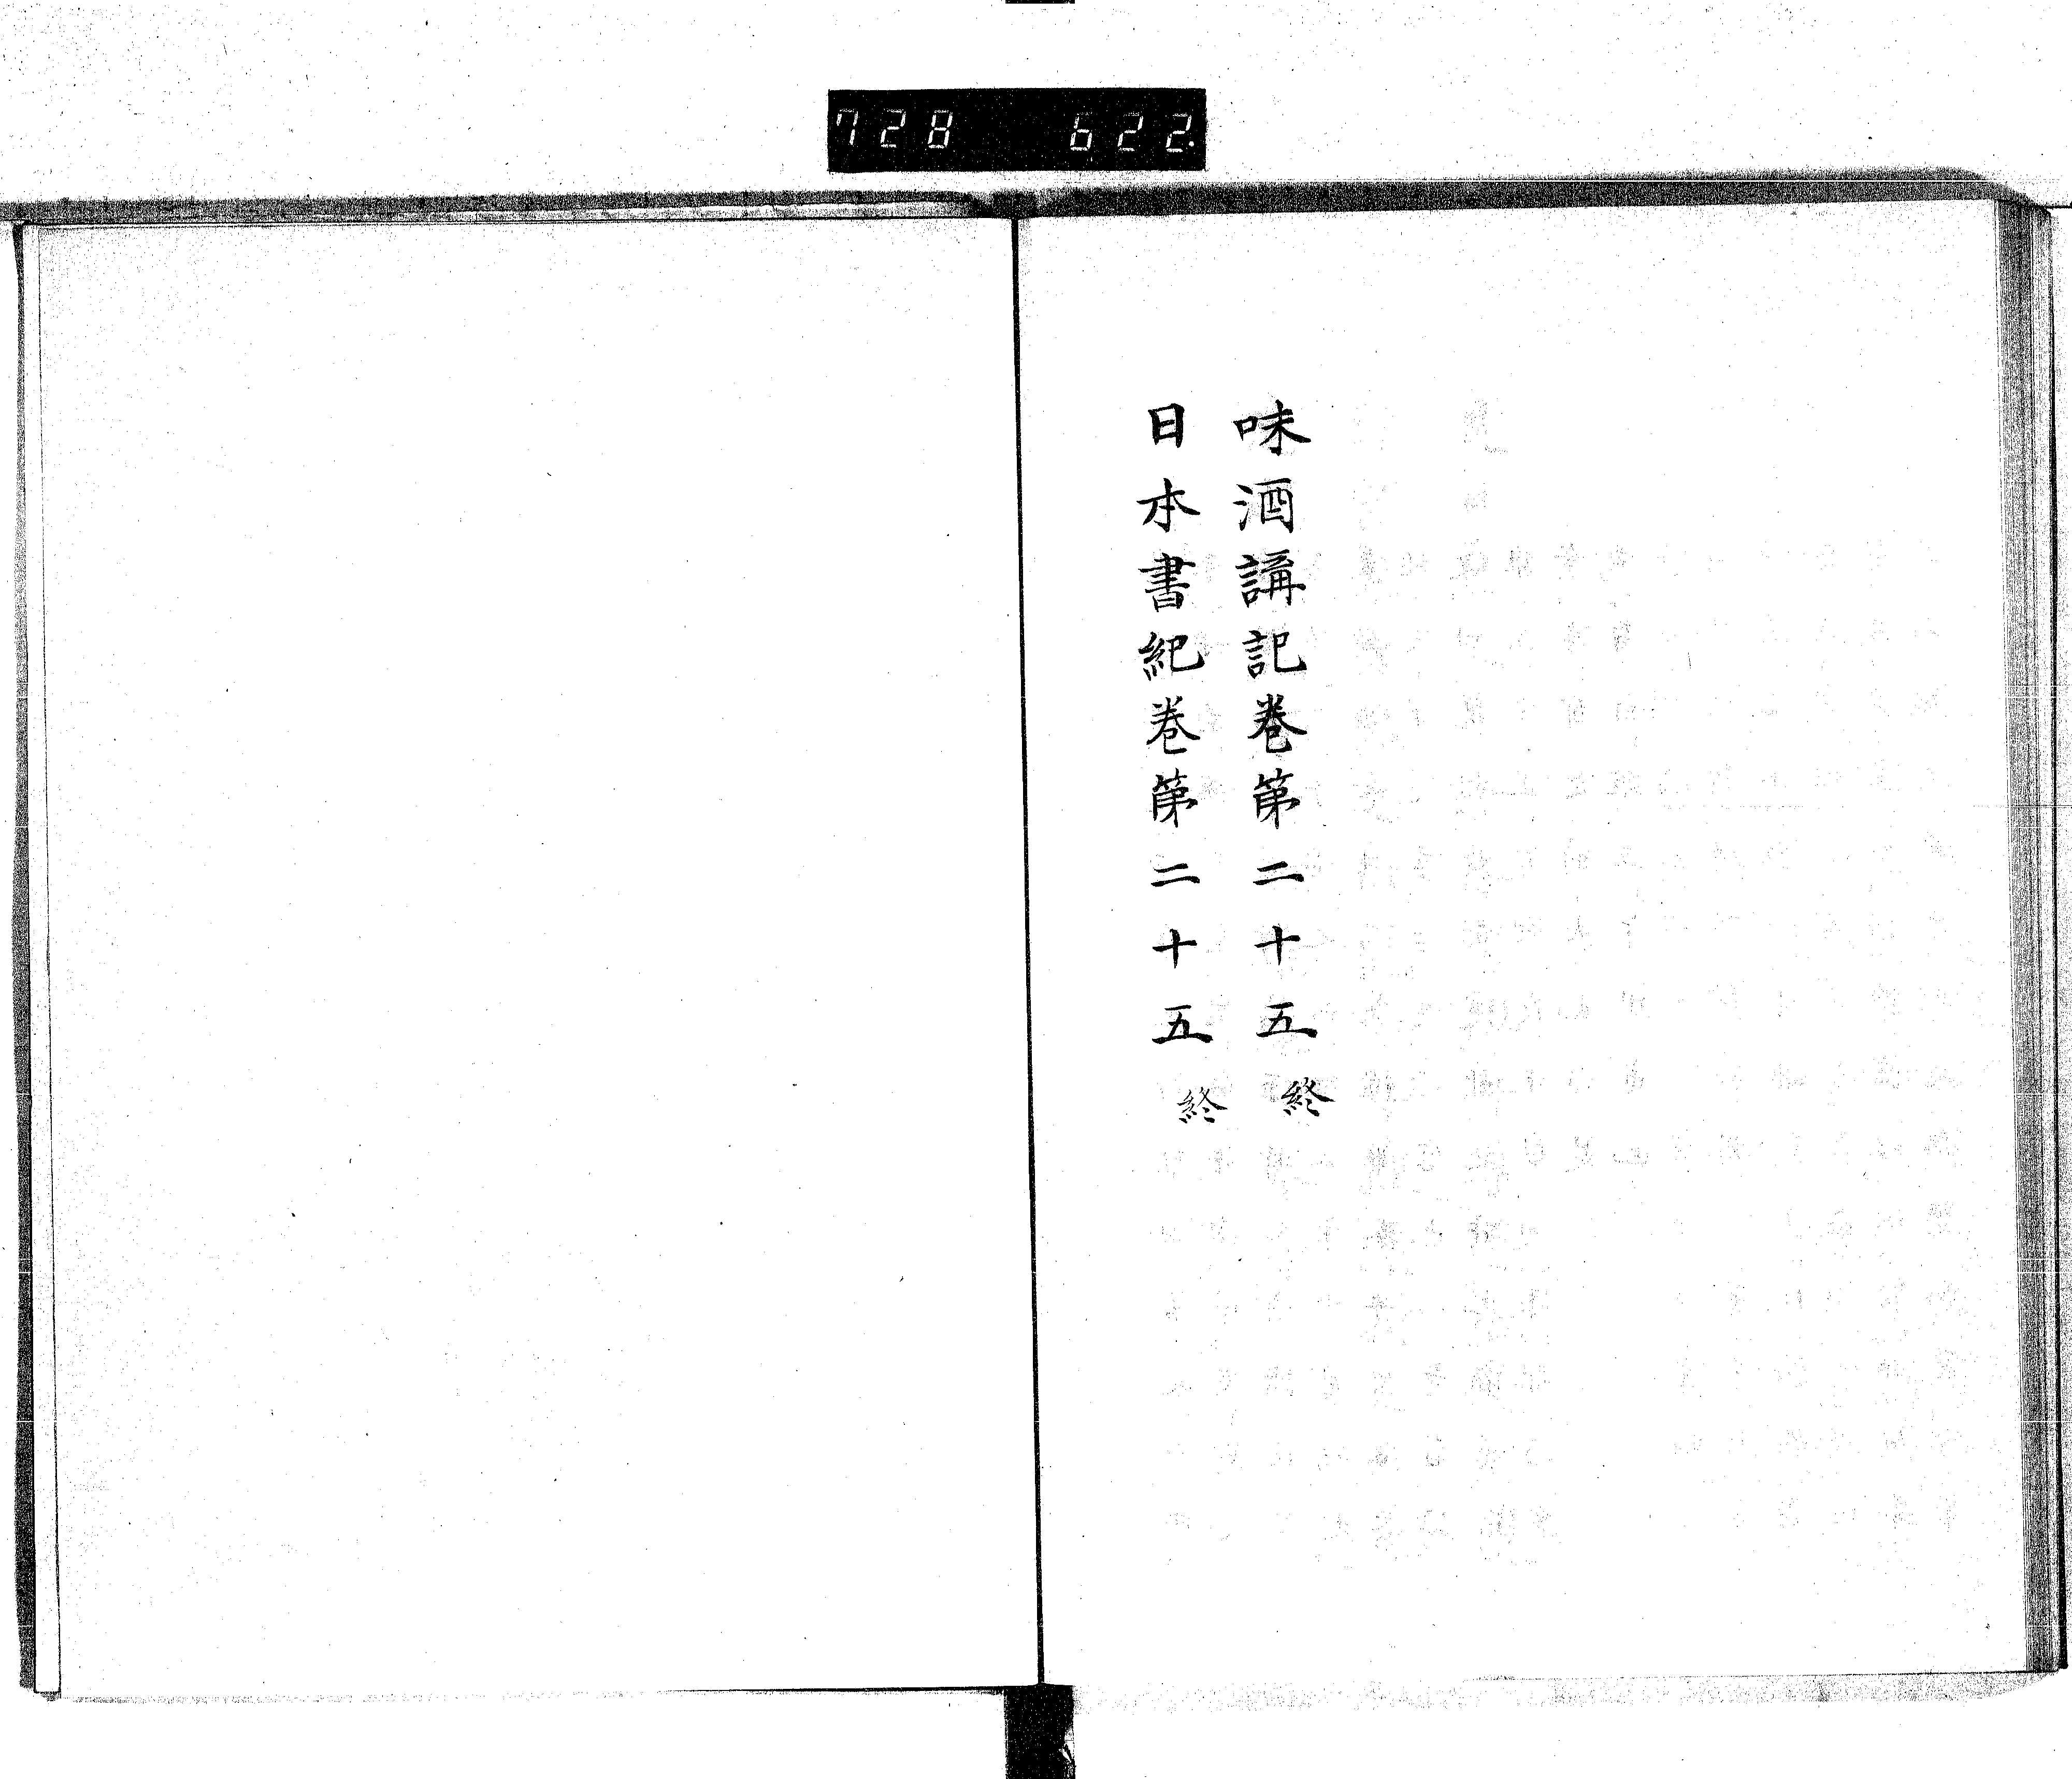 728 622.
味酒講記卷第二十五終
日本書紀卷第二十五終